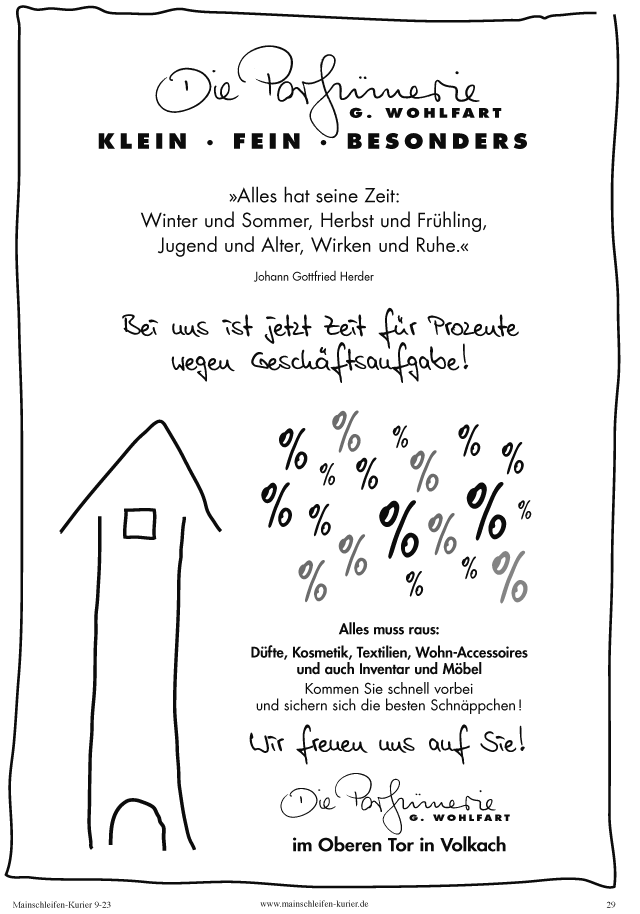 Die Parfümerie
G. WOHLFART
KLEIN · FEIN · BESONDERS
»Alles hat seine Zeit:
Winter und Sommer, Herbst und Frühling,
Jugend und Alter, Wirken und Ruhe.«
Johann Gottfried Herder
Bei uns ist jetzt Zeit für Prozente
wegen Geschäftsaufgabe!
% % % % %
% % %
% % % % % %
% % % % %
Alles muss raus:
Düfte, Kosmetik, Textilien, Wohn-Accessoires
und auch Inventar und Möbel
Kommen Sie schnell vorbei
und sichern sich die besten Schnäppchen!
Wir freuen uns auf Sie!
Die Parfümerie
G. WOHLFART
im Oberen Tor in Volkach
Mainschleifen-Kurier 9-23 www.mainschleifen-kurier.de 29